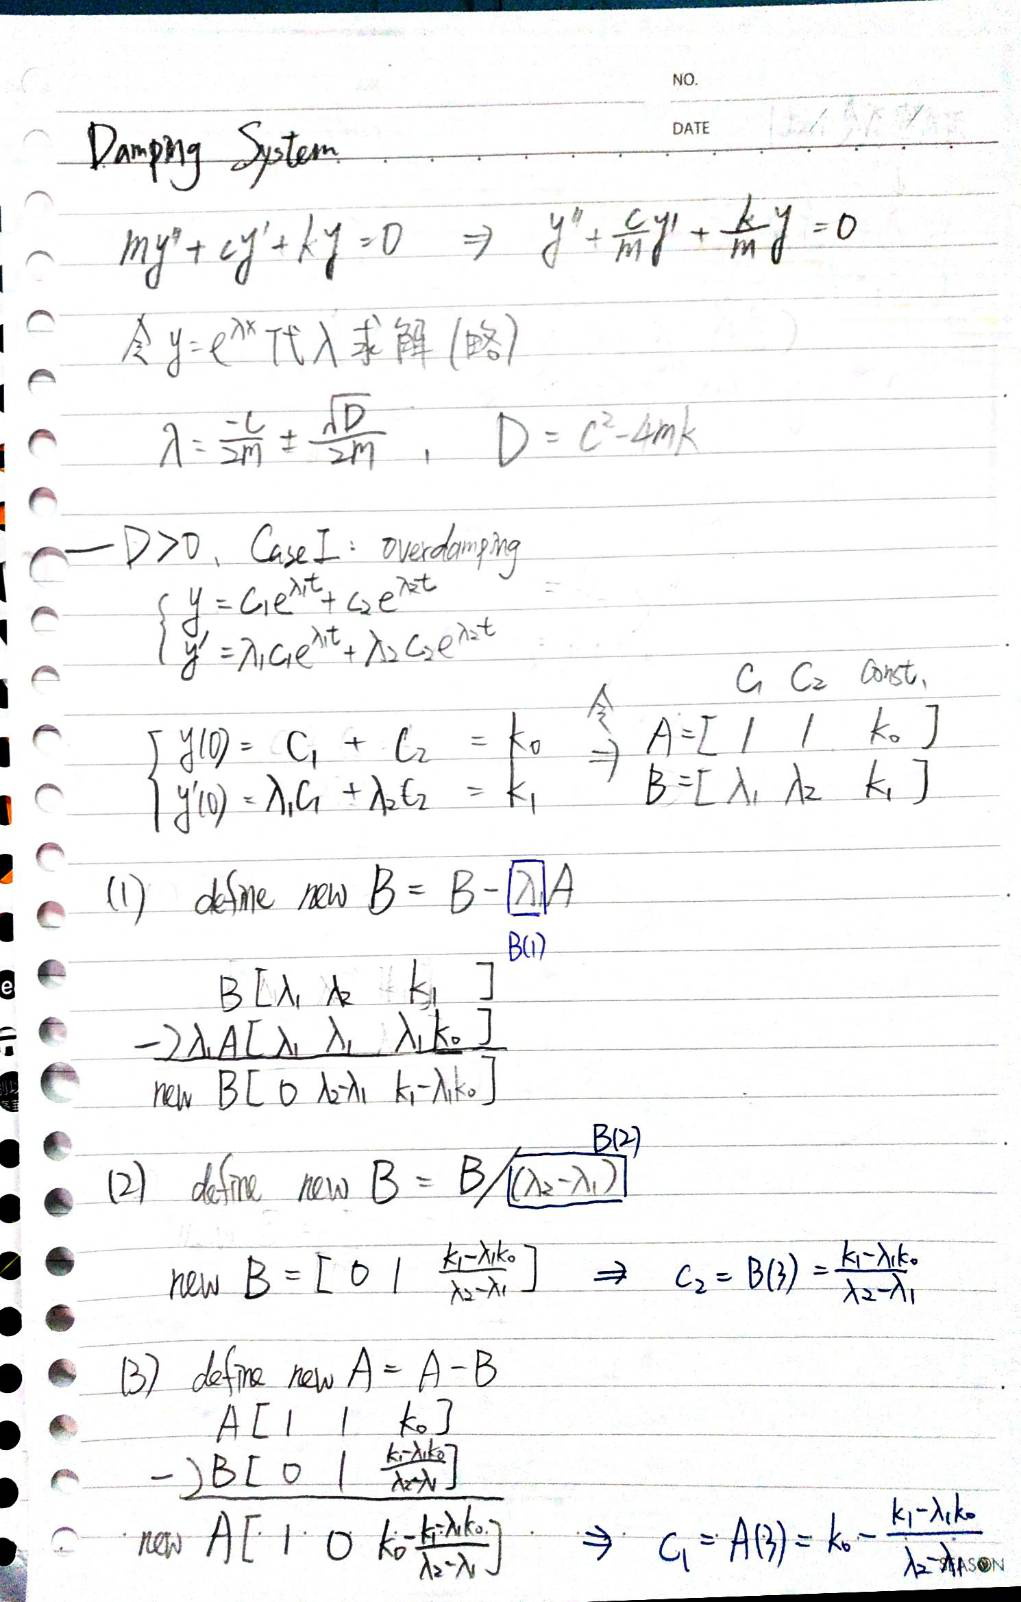 NO.
DATE
Damping System
my" + cy' + ky = 0 ⇒ y" + c/m y' + k/m y = 0
令 y = e^λx 代入求解 (略)
λ = -c/2m ± √D/2m , D = c² - 4mk
— D>0, Case I: overdamping
{ y = c₁e^λ₁t + c₂e^λ₂t
y' = λ₁c₁e^λ₁t + λ₂c₂e^λ₂t
C₁ C₂ const.
{ y(0) = C₁ + C₂ = k₀ 令 ⇒ A = [ 1 1 k₀ ]
y'(0) = λ₁C₁ + λ₂C₂ = k₁ B = [ λ₁ λ₂ k₁ ]
(1) define new B = B - λ₁A
B(1)
B [ λ₁ λ₂ k₁ ]
-) λ₁A [ λ₁ λ₁ λ₁k₀ ]
new B [ 0 λ₂-λ₁ k₁-λ₁k₀ ]
B(2)
(2) define new B = B/(λ₂-λ₁)
new B = [ 0 1 (k₁-λ₁k₀)/(λ₂-λ₁) ] ⇒ c₂ = B(3) = (k₁-λ₁k₀)/(λ₂-λ₁)
(3) define new A = A - B
A [ 1 1 k₀ ]
-) B [ 0 1 (k₁-λ₁k₀)/(λ₂-λ₁) ]
new A [ 1 0 k₀ - (k₁-λ₁k₀)/(λ₂-λ₁) ] ⇒ c₁ = A(3) = k₀ - (k₁-λ₁k₀)/(λ₂-λ₁)
SEASON